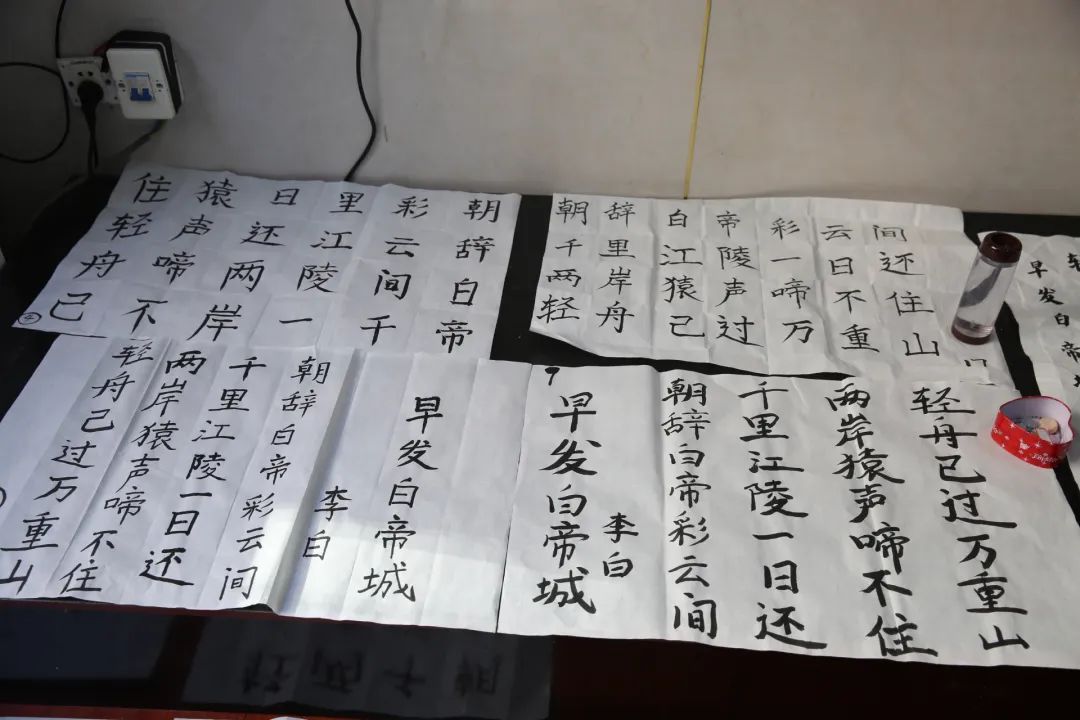 朝辞白帝
彩云间千
里江陵一
日还两岸
猿声啼不
住轻舟己
朝辞白帝彩云间
千里江陵一日还
两岸猿声啼不住
轻舟己过万重山
早发白帝
早发白帝城
李白
朝辞白帝彩云间
千里江陵一日还
两岸猿声啼不住
轻舟己过万重山
早发白帝城
李白
朝辞白帝彩云间
千里江陵一日还
两岸猿声啼不住
轻舟已过万重山